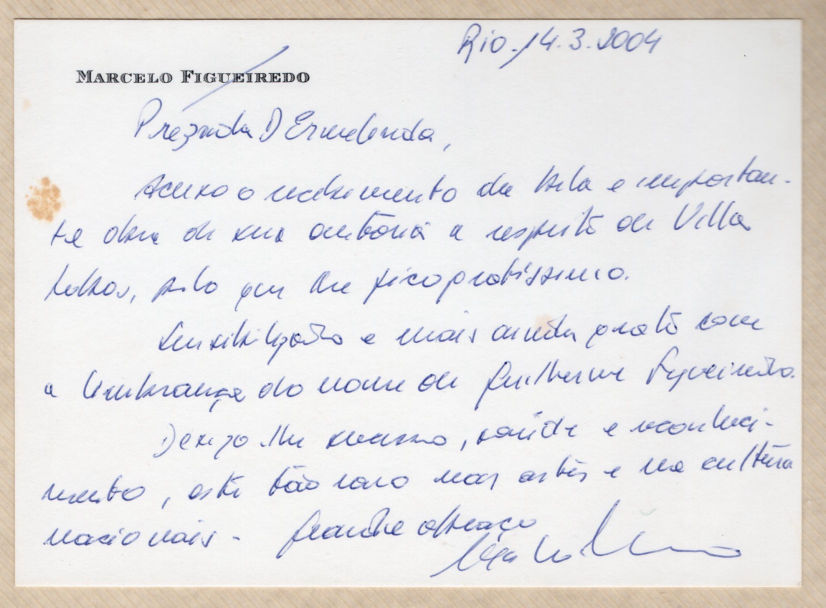 Rio, 14.3.2004
MARCELO FIGUEIREDO
Prezada D Ermelinda,
Acuso o recebimento da bela e importan-
te obra de sua autoria a respeito de Villa
Lobos, pelo que lhe fico gratíssimo.
Sensibilizado e mais ainda grato com
a lembrança do nome de Guilherme Figueiredo.
Desejo lhe sucesso, saúde e reconheci-
mento, este tão raro nas artes e na cultura
nacionais - Grande abraço